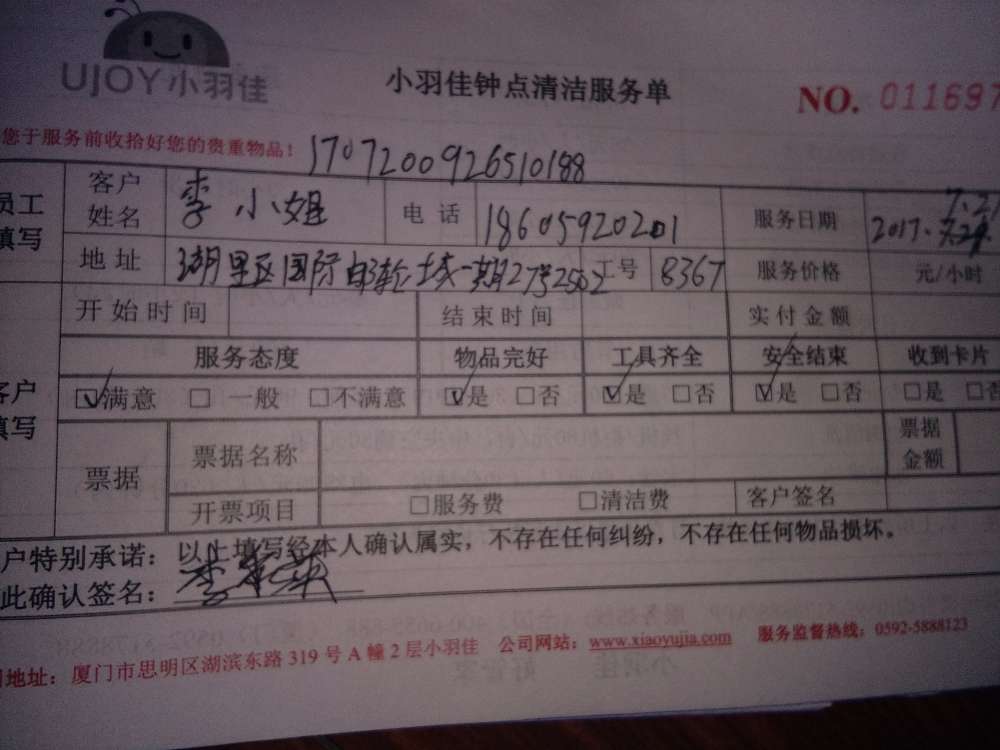 UJOY小羽佳
小羽佳钟点清洁服务单
NO. 011697
您于服务前收拾好您的贵重物品！
1707200926510188
员工填写
客户姓名 李小姐 电话 18605920201 服务日期 2017.
地址 湖里区国际邮轮城一期27号2502 工号 8367 服务价格 元/小时
客户填写
开始时间 结束时间 实付金额
服务态度 物品完好 工具齐全 安全结束 收到卡片
☑满意 □一般 □不满意 ☑是 □否 ☑是 □否 ☑是 □否 □是 □否
票据 票据名称 票据金额
开票项目 □服务费 □清洁费 客户签名
户特别承诺：以上填写经本人确认属实，不存在任何纠纷，不存在任何物品损坏。
此确认签名：
地址：厦门市思明区湖滨东路319号A幢2层小羽佳 公司网站：www.xiaoyujia.com 服务监督热线：0592-5888123